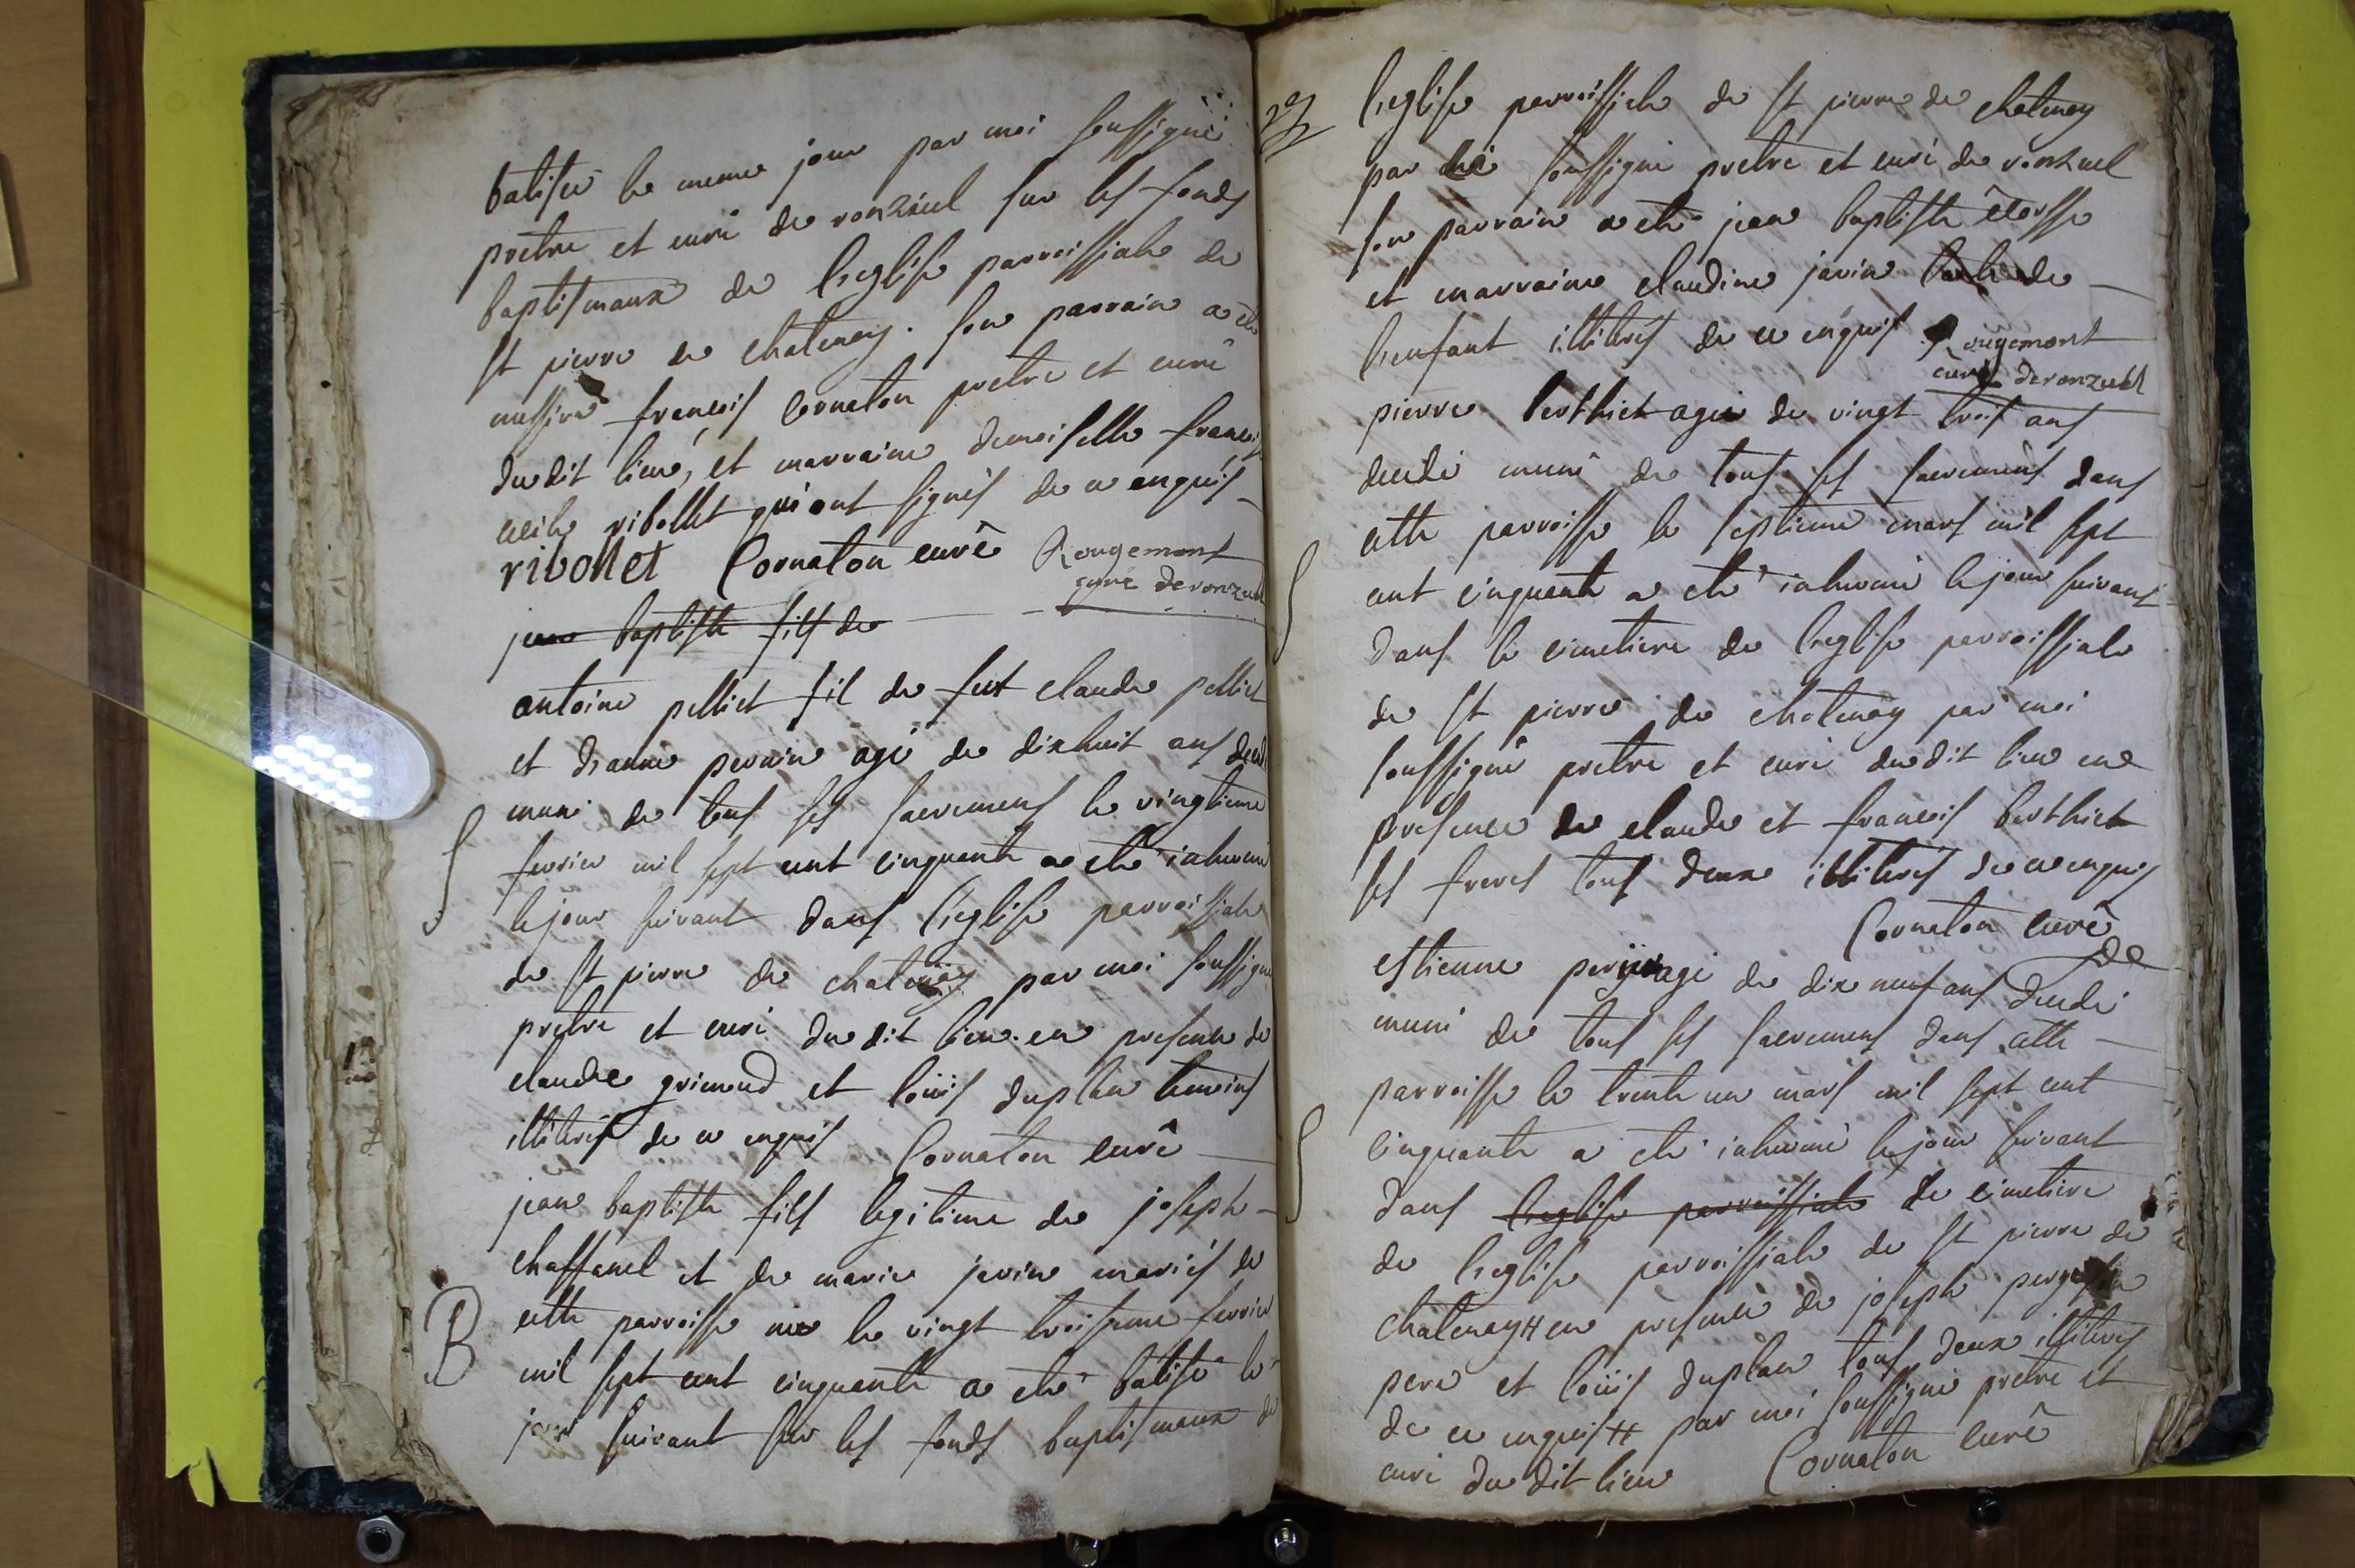 batisé le meme jour par moi soussigné
pretre et curé de ronzuel sur les fonds
baptismaux de l'eglise parroissiale de
st pierre de chatenay. son parrain a eté
messire francois Cornaton pretre et curé
du dit lieu, et marraine demoiselle francoise
cecile ribollet qui ont signés de ce enquis
rivollet Cornaton curé Rougemont
curé de ronzuel
jean baptiste fils de
antoine pelliet fil de feut claude pelliet
et d'anne perrin agé de dixhuit ans decedé
muni de tous ses sacremens le vingtieme
fevrier mil sept cent cinquante a eté inhumé
le jour suivant dans l'eglise parroissiale
de st pierre de chatenay par moi soussigné
pretre et curé du dit lieu en presence de
claude grimaud et loüis duplan temoins
illiterés de ce enquis Cornaton curé
jean baptiste fils legitime de joseph
chaffanel et de marie javin mariés de
B
cette parroisse né le vingt troisieme fevrier
mil sept cent cinquante a eté batisé le
jour suivant sur les fonds baptismaux de
l'eglise parroissiale de st pierre de chatenay
par moi soussigné pretre et curé de ronzuel
son parrain a eté jean baptiste
et marraine claudine javin tante de
l'enfant illiterés de ce enquis Rougemont
curé de ronzuel
pierre berthiet agé de vingt trois ans
decedé muni de tous ses sacremens dans
cette parroisse le septieme mars mil sept
cent cinquante a eté inhumé le jour suivant
dans le cimetiere de l'eglise parroissiale
de st pierre de chatenay par moi
soussigné pretre et curé du dit lieu en
presence de claude et francois berthiet
ses freres tous deux illiterés de ce enquis
Cornaton curé
estienne agé de dix neuf ans decedé
muni de tous ses sacremens dans cette
parroisse le trente un mars mil sept cent
cinquante a eté inhumé le jour suivant
dans l'eglise parroissiale le cimetiere
de l'eglise parroissiale de st pierre de
chatenay # en presence de joseph
pere et loüis duplan tous deux illiterés
de ce enquis # par moi soussigné pretre et
curé du dit lieu Cornaton curé